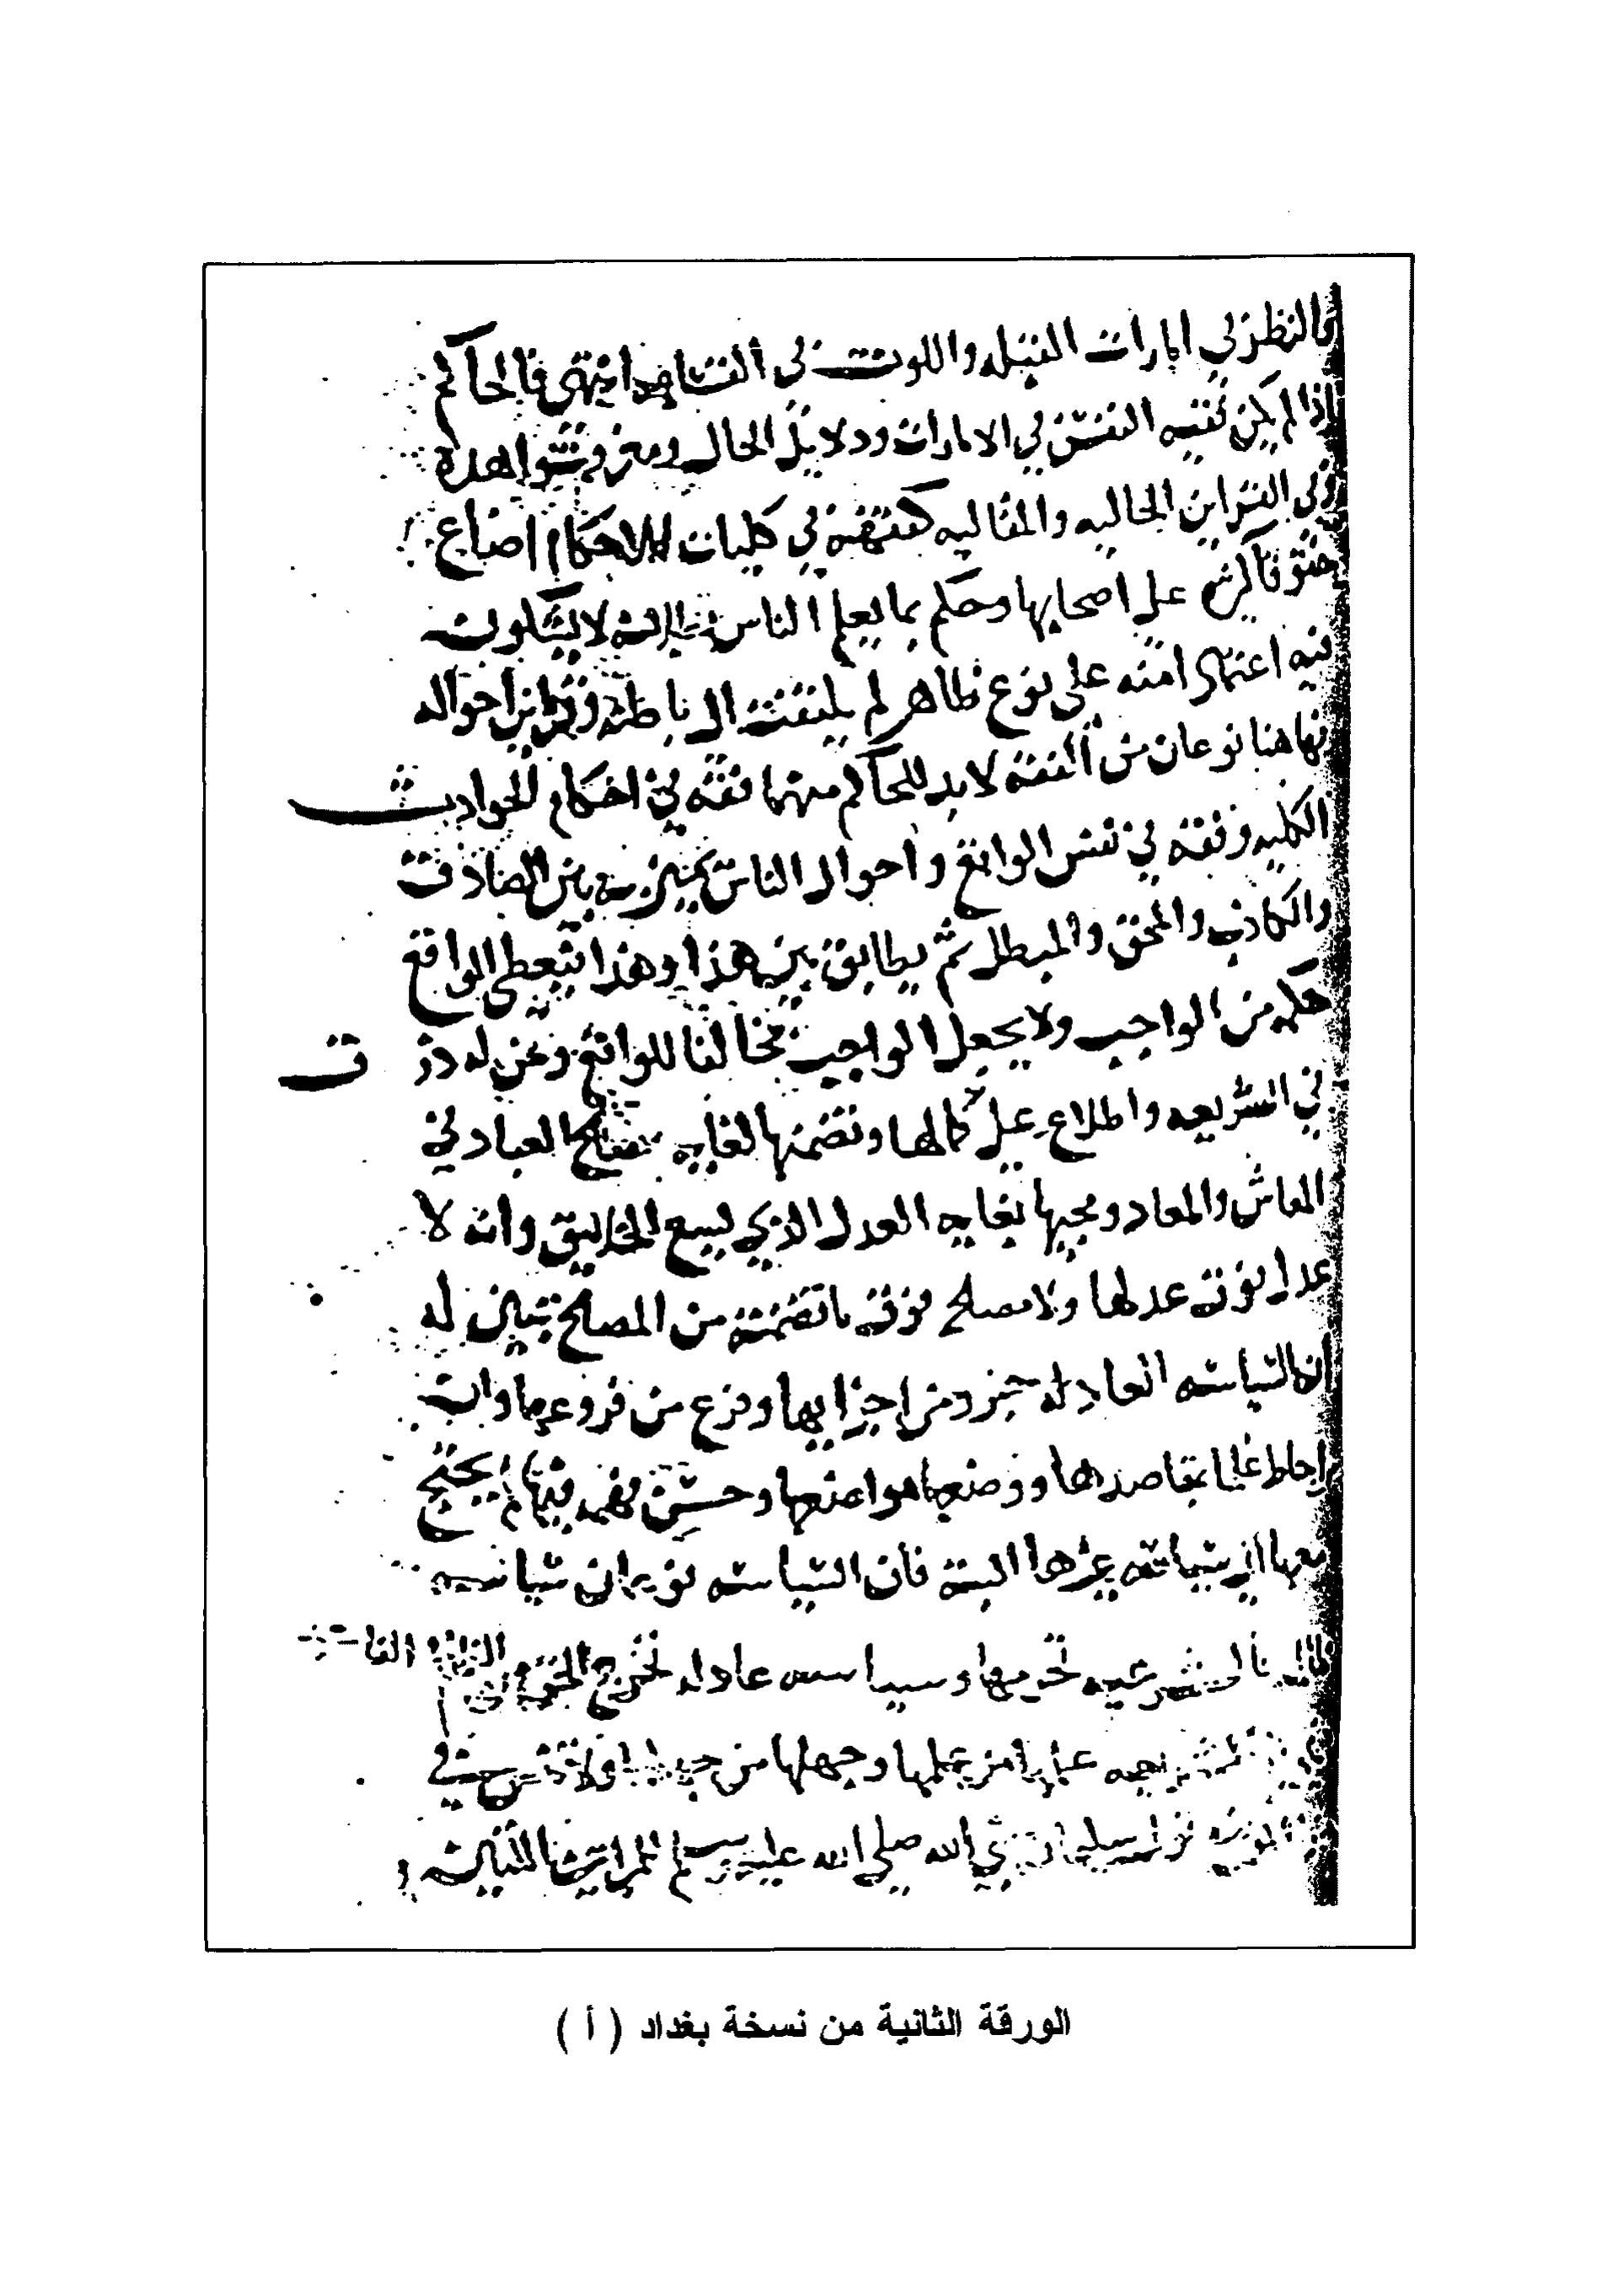 والنظر في امارات القبله واللوث في القسامه انتهى فالحاكم
اذا لم يكن فقيه النفس في الامارات ودلايل الحال ومعرفه شواهده
وفي القراين الحاليه والمقاليه كفقهه في كليات الاحكام اضاع
حقوقا كثيره على اصحابها وحكم بما يعلم الناس بطلانه لا يشكون
فيه اعتمادا منه على نوع ظاهر لم يلتفت الى باطنه وقراين احواله
فهاهنا نوعان من الفقه لا بد للحاكم منهما فقه في احكام الحوادث
الكليه وفقه في نفس الواقع واحوال الناس يميز به بين الصادق
والكاذب والمحق والمبطل ثم يطابق بين هذا وهذا فيعطي الواقع
حكمه من الواجب ولا يجعل الواجب مخالفا للواقع ومن له ذوق
في الشريعه واطلاع على كمالها وتضمنها لغايه مصالح العباد في
المعاش والمعاد ومجيها بغايه العدل الذي يسع الخلايق وانه لا
عدل فوق عدلها ولا مصلحه فوق ما تضمنته من المصالح تبين له
ان السياسه العادله جزء من اجزايها وفرع من فروعها وان
احاط علما بمقاصدها ووضعها مواضعها وحسن فهمه فيها لم يحتج
معها الى سياسه غيرها البته فان السياسه نوعان سياسه
ظالمه فالشريعه تحرمها وسياسه عادله تخرج الحق من الظالم الفاجر
فهي من الشريعه علمها من علمها وجهلها من جهلها ولا تنس في
سليمان نبي الله صلى الله عليه وسلم للمراتين اللتين
الورقة الثانية من نسخة بغداد ( أ )